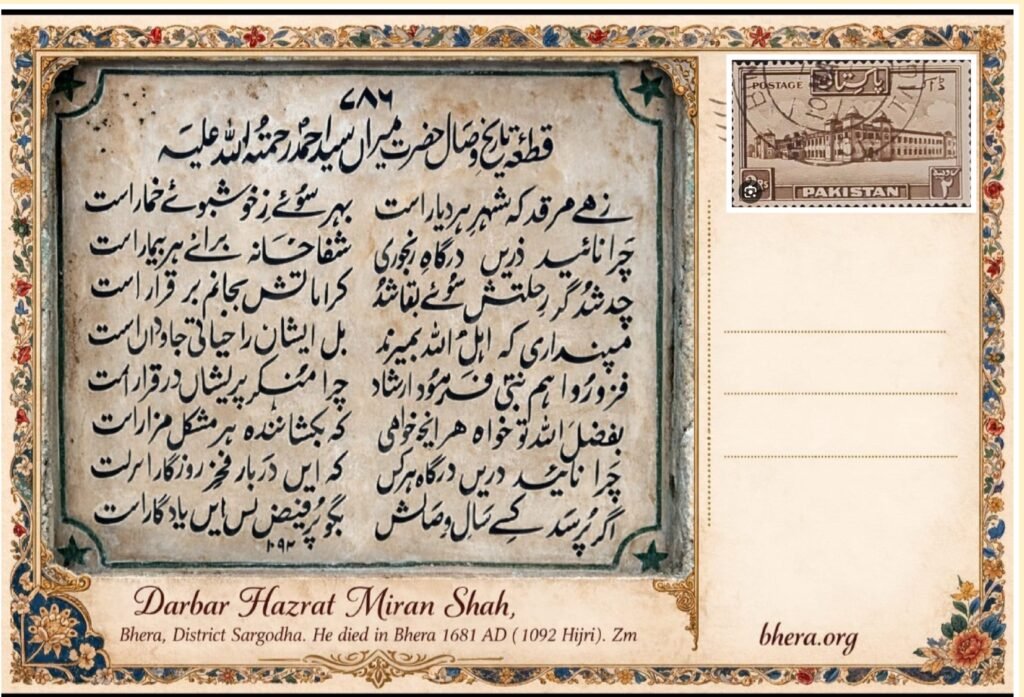 ۷۸۶
قطعہ تاریخ وصال حضرت میراں سید احمد رحمتہ اللہ علیہ
زھے مرقد کہ شہر ہر دیار است بہر سوئے ز خوشبوئے خمار است
چرا نائید دریں درگاہِ رنجوری شفا خانہ برائے ہر بیمار است
چہ شد گر رحلتش سوئے بقا شد کراماتش بجانم بر قرار است
مپنداری کہ اہل اللہ بمیرند بل ایشان را حیاتی جاودان است
ہم نبی فرمود ارشاد چرا منکر پریشاں در قرار است
بفضل اللہ تو خواہ ھر انچہ خواھی کہ بکشائندہ ہر مشکل مزار است
چرا نائید دریں درگاہ ہر کس کہ ایں دربار فخر روزگار است
اگر پرسد کسے سال وصالش بگو پُر فیض بس ایں یادگار است
۱۰۹۲
POSTAGE پاکستان
PAKISTAN ۲
Darbar Hazrat Miran Shah,
Bhera, District Sargodha. He died in Bhera 1681 AD (1092 Hijri). Zm
bhera.org